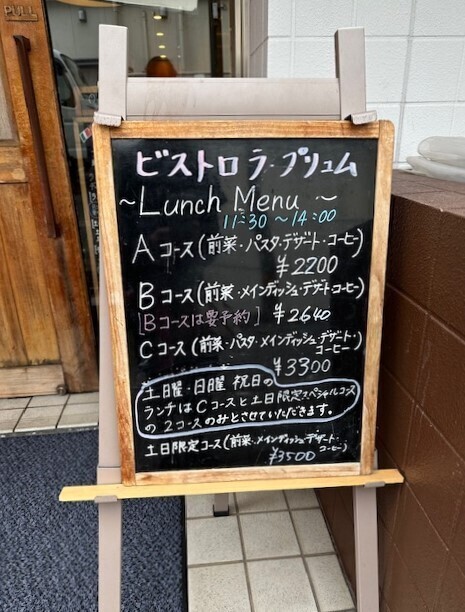 PULL
ビストロ ラ・プリュム
~Lunch Menu~
11:30~14:00
Aコース(前菜・パスタ・デザート・コーヒー)
¥2200
Bコース(前菜・メインディッシュ・デザート・コーヒー)
[Bコースは要予約] ¥2640
Cコース(前菜・パスタ・メインディッシュ・デザート・
コーヒー)
¥3300
土曜・日曜 祝日の
ランチはCコースと土日限定スペシャルコース
の2コースのみとさせていただきます。
土日限定コース(前菜・メインディッシュ・デザート・
コーヒー)
¥3500